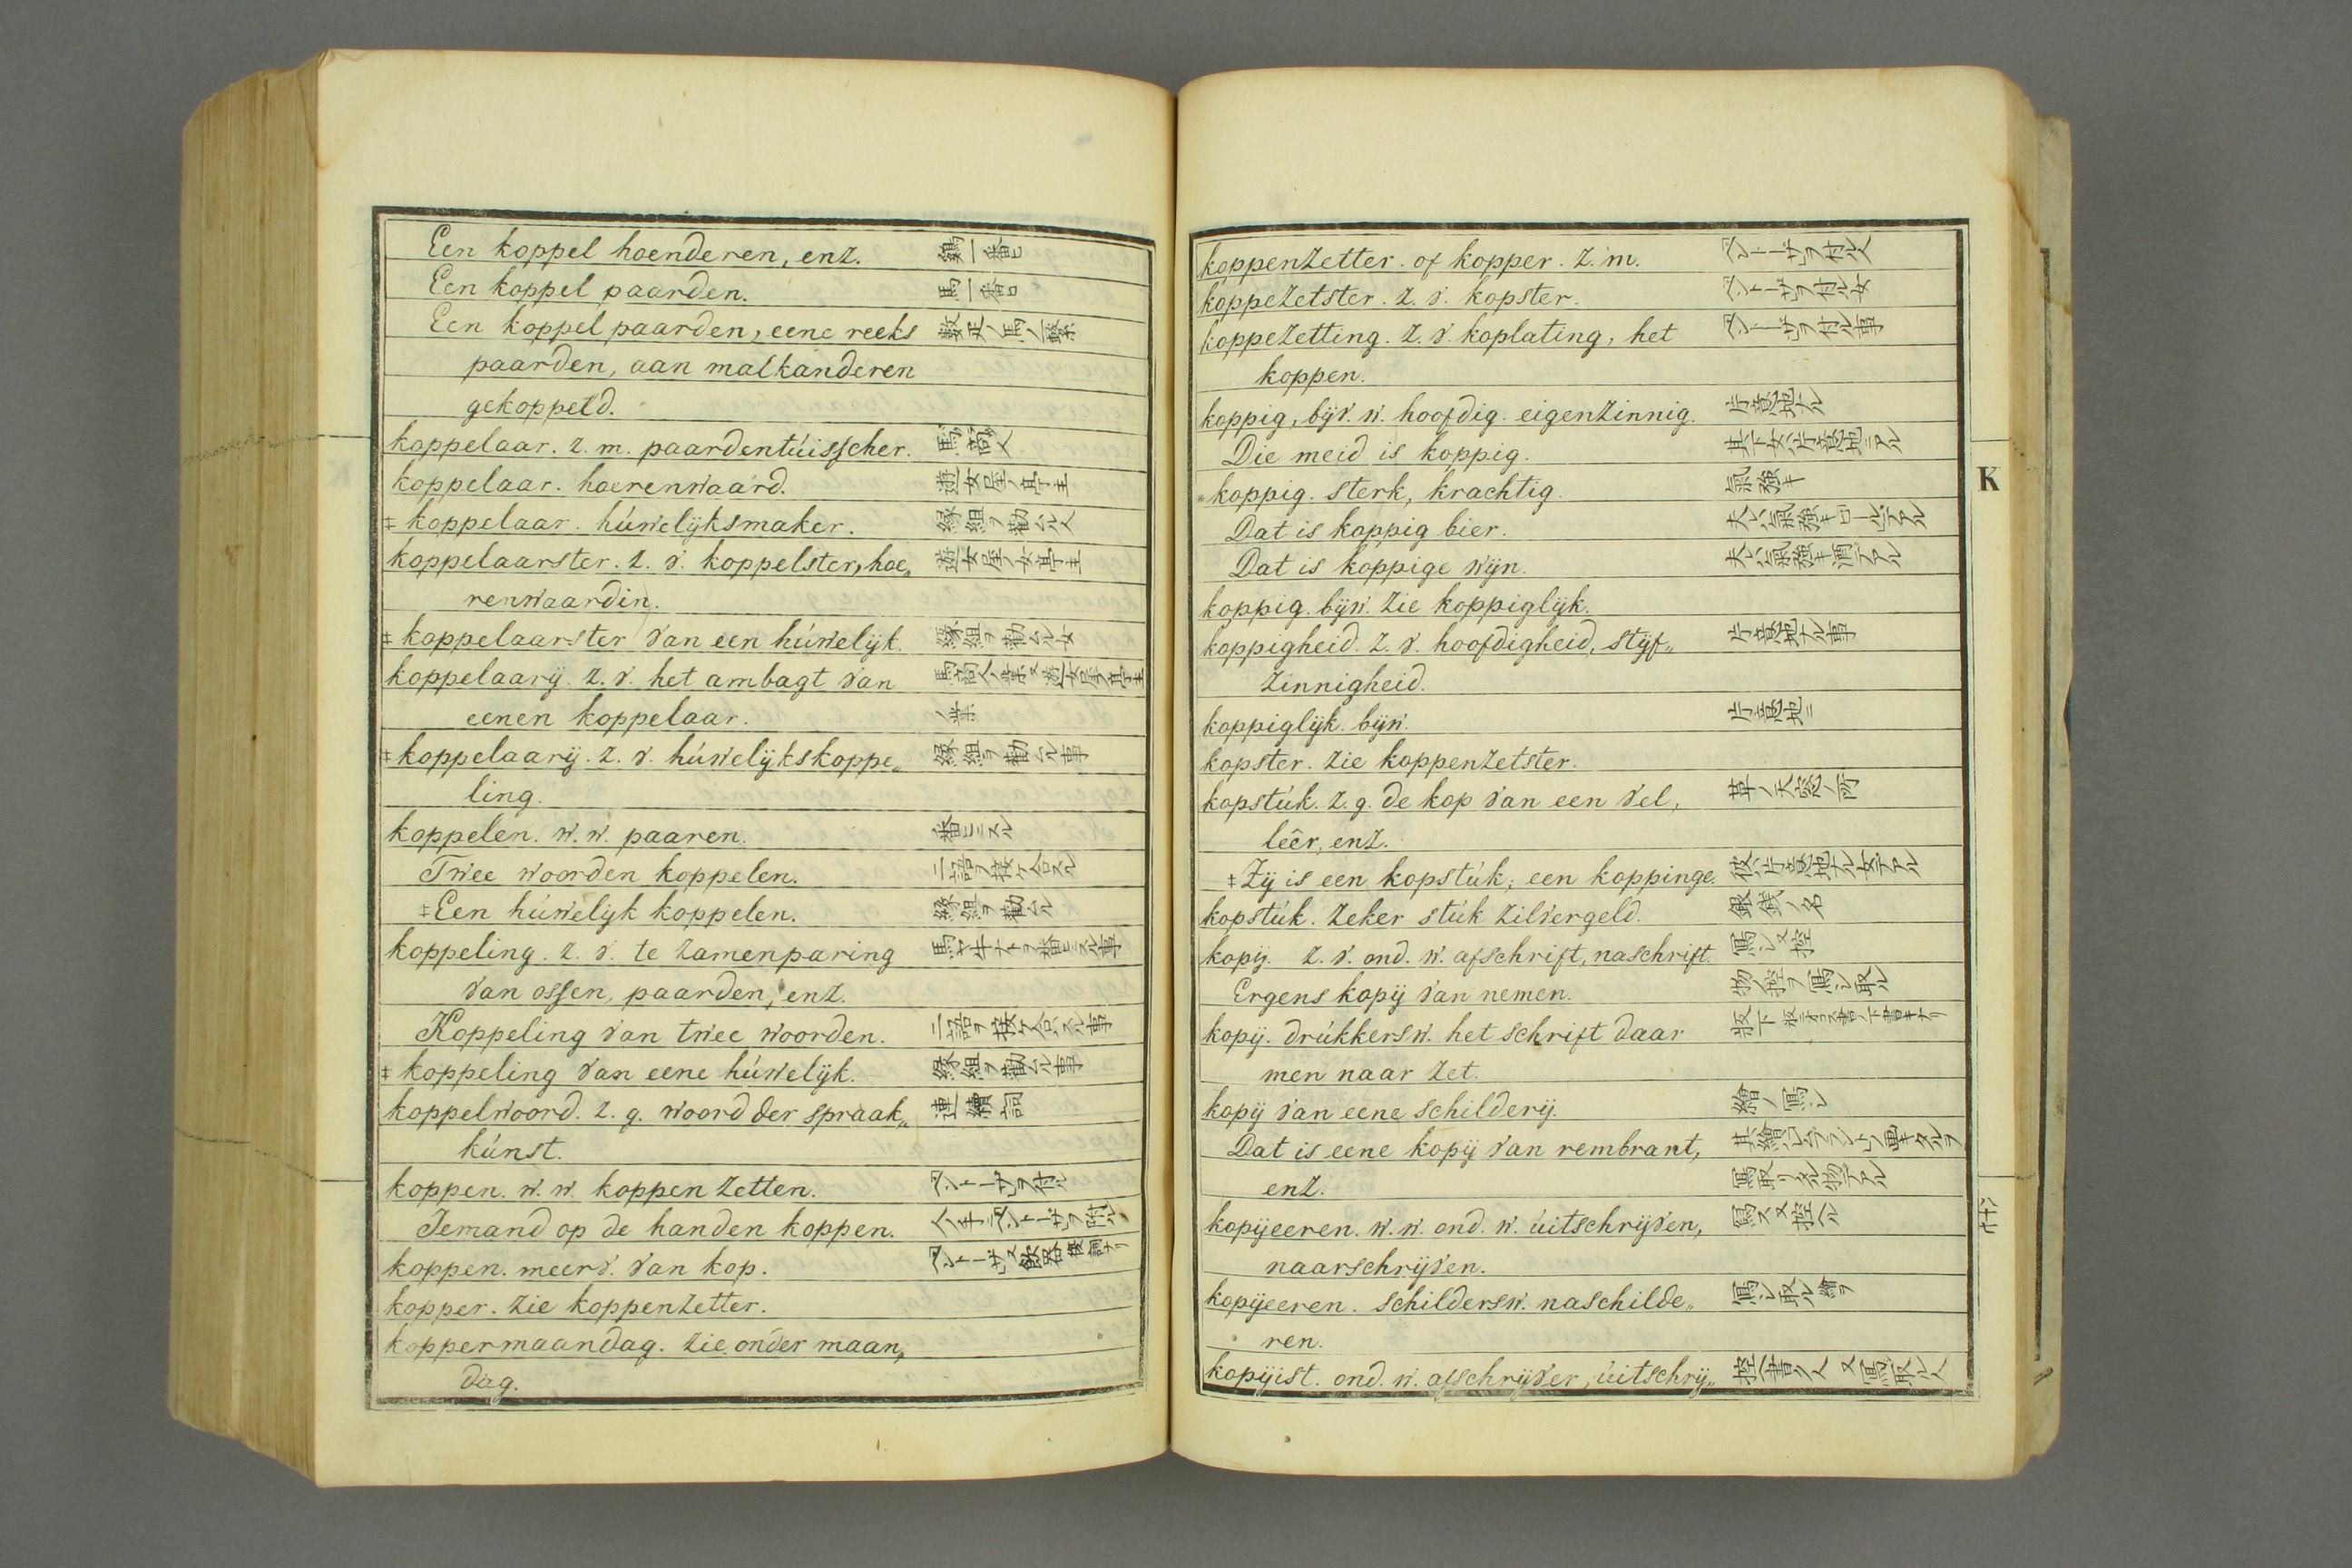 Een koppel hoenderen, enz. 鷄一番ヒ
Een koppel paarden. 馬一番ヒ
Een koppel paarden, eene reeks 數疋ノ馬ノ一繋
paarden, aan malkanderen
gekoppeld.
koppelaar. z. m. paardentúisscher. 馬商人
koppelaar. hoerenwaard. 遊女屋ノ亭主
‡ koppelaar. húwelijksmaker. 縁組ヲ勸ムル人
koppelaarster. z. v. koppelster, hoe„ 遊女屋ノ女亭主
renwaardin.
‡ koppelaarster van een húwelijk. 縁組ヲ勸ムル女
koppelaarij. z. v. het ambagt van 馬商人ノ業又遊女屋ノ亭主
eenen koppelaar. ノ業
‡ koppelaarij. z. v. húwelijkskoppe„ 縁組ヲ勸ムル事
ling.
koppelen. w. w. paaren. 番ヒニスル
Twee woorden koppelen. 二語ヲ接ケ合スル
‡ Een húwelijk koppelen. 縁組ヲ勸ムル
koppeling. z. v. te zamenparing 馬ヤ牛ナトヲ番ヒニスル事
van ossen, paarden, enz.
Koppeling van twee woorden. 二語ヲ接ケ合スル事
‡ koppeling van eene húwelijk. 縁組ヲ勸ムル事
koppelwoord. z. g. woord der spraak„ 連續詞
kúnst.
koppen. w. w. koppen zetten. ヲ付ル
Iemand op de handen koppen. 人ノ手ニ
koppen. meerv. van kop.
kopper. zie koppenzetter.
koppermaandag. zie onder maan„
dag.
koppenzetter. of kopper. z. m. ヲ付ル人
koppezetster. z. v. kopster. ヲ付ル女
koppezetting. z. v. koplating, het ヲ付ル事
koppen.
koppig, bijv. w. hoofdig. eigenzinnig. 片意地ナル
Die meid is koppig. 其下女ハ片意地ニアル
koppig. sterk, krachtig. 氣強キ
Dat is koppig bier. 夫ハ氣強キビールデアル
Dat is koppige wijn. 夫ハ氣強キ酒デアル
koppig. bijw. zie koppiglijk.
koppigheid. z. v. hoofdigheid, stijf„ 片意地ナル事
zinnigheid.
koppiglijk. bijw. 片意地ニ
kopster. zie koppenzetster.
kopstúk. z. g. de kop van een vel,
leêr, enz.
‡ Zij is een kopstúk; een koppinge. 彼ハ片意地ナル女デアル
kopstúk. zeker stúk zilvergeld. 銀錢ノ名
kopij. z. v. ond. w. afschrift, naschrift. 寫シ又控
Ergens kopij van nemen. 物ノ控ヲ寫シ取ル
kopij. drúkkersw. het schrift daar 板下
men naar zet.
kopij van eene schilderij. 繪ノ寫シ
Dat is eene kopij van rembrant, 其繪ハレムブラントノ畫キタルヲ
enz. 寫取リタル物デアル
kopijeeren. w. w. ond. w. úitschrijven, 寫ス又控ヘル
naarschrijven.
kopijeeren. schildersw. naschilde„ 寫シ取ル 繪ヲ
ren.
kopijist. ond. w. afschrijver, úitschrij„ 控ヘ書ク人 又寫取ル人
K